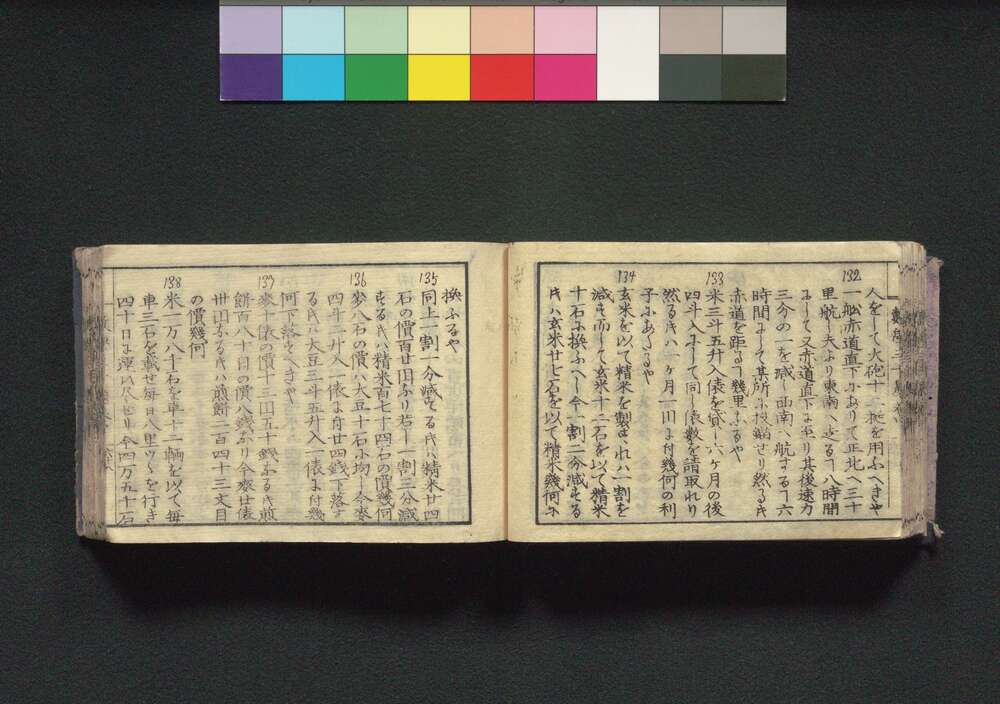 人をして大砲十二挺を用ふへきや
132 一舩赤道直下ふありて正北へ三十
里航し夫より東南へ走るヿ八時間
ふして又赤道直下ふ至り其後速力
三分の一を減し西南ふ航するヿ六
時間ふして某所ふ投錨せり然るㇳキ
赤道を距るヿ幾里ふるや
133 米三斗五升入一俵を貸し六ヶ月の後
四斗入ふして同し俵数を請取れり
然るㇳキハ一ヶ月一円ふ付幾何の利
子ふあたるや
134 玄米を以て精米を製されハ一割を
減す而して玄米十二石を以て精米
十一石ふ換ふへし今一割二分減する
ㇳキハ玄米廿七石を以て精米幾何ふ
換ふるや
135 同上一割一分減するㇳキハ精米廿四
石の價百廿円ふり若し一割三分減
するㇳキハ精米百七十四石の價幾何
136 麥八石の價ハ大豆十石ふ均し今麥
四斗二升入一俵ふ付廿四銭下落す
るㇳキハ大豆三斗五升入一俵ふ付幾
何下落すへきや
137 麥十俵の價十三円五十銭ふるㇳキ煎
餅百八十目の價八銭ふり今麥廿俵
卅円ふるㇳキハ煎餅二百四十三文目
の價幾何
138 米一万八千石を車十二輌を以て毎
車三石を載せ毎日八里ツヽを行き
四十日ふ運ひ尽せり今四万五十石